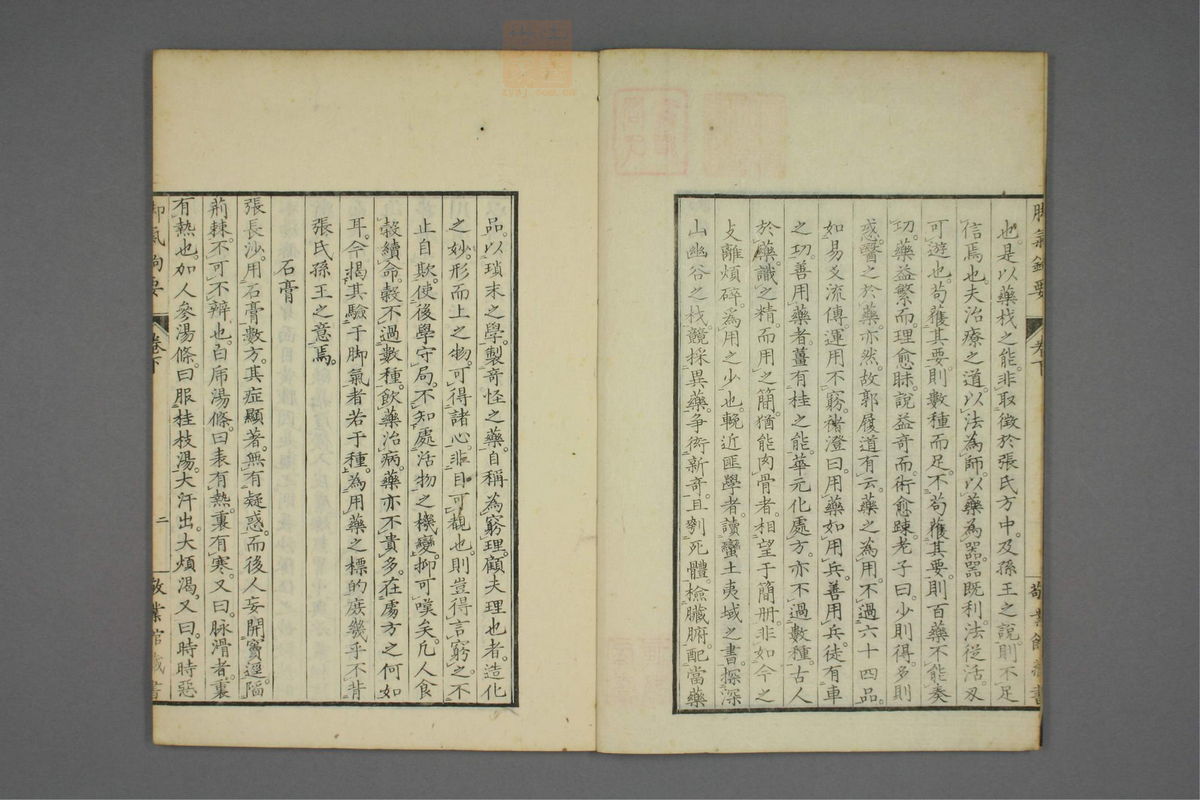 也。是以藥材之能。非取徵於張氏方中。及孫王之說。則不足
信焉也。夫治療之道。以法為師。以藥為器。器既利。法從活。刄
可遊也。苟獲其要。則數種而足。不苟獲其要。則百藥不能奏
功。藥益繁而理愈昧。說益奇而術愈踈。老子曰。少則得。多則
惑。醫之於藥亦然。故郭履道有云。藥之為用。不過六十四品。
如易爻流傳。運用不窮。褚澄曰。用藥如用兵。善用兵。徒有車
之功。善用藥者。薑有桂之能。華元化處方。亦不過數種。古人
於藥。識之精。而用之簡。猶能肉骨者。相望于簡冊。非如今之
攴離煩碎。為用之少也。輓近匪學者。讀蠻土夷域之書。探深
山幽谷之材。競採異藥。爭衒新奇。且剝死體。檢臟腑。配當藥
品。以瑣末之學。製奇怪之藥。自稱為窮理。顧夫理也者。造化
之妙。形而上之物。可得諸心。非目可覩也。則豈得言窮之。不
止自欺。使後學守局。不知處活物之機變。抑可嘆矣。凡人食
穀續命。穀不過數種。飲藥治病。藥亦不貴多。在處方之何如
耳。今揭其驗于脚氣者若干種。為用藥之標的。庶幾乎不背
張氏孫王之意焉。
石膏
張長沙。用石膏數方。其症顯著。無有疑惑。而後人妄開竇逕。陷
荊棘。不可不辨也。白虎湯條。曰表有熱。裏有寒。又曰。脉滑者。裏
有熱也。加人參湯條。曰服桂枝湯。大汗出。大煩渴。又曰。時時惡
卷下
二